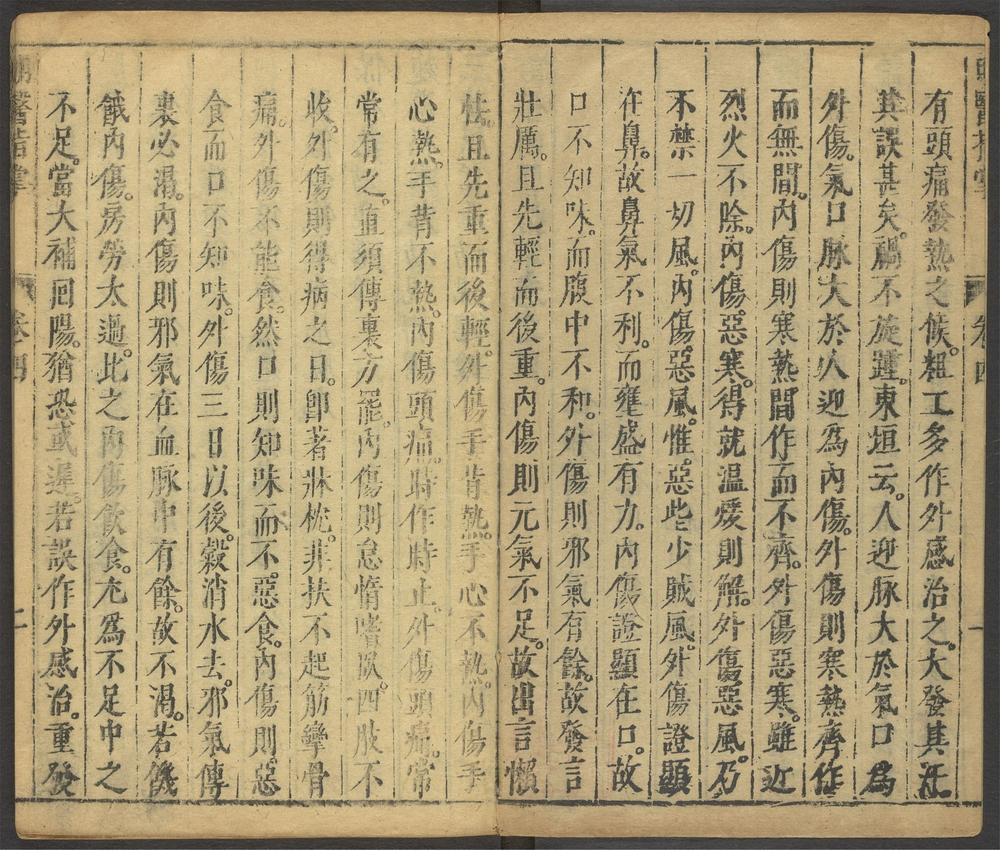 有頭痛發熱之候。粗工多作外感治之。大發其汗。
其誤甚矣。禍不旋踵。東垣云。人迎脉大於氣口爲
外傷。氣口脉大於人迎爲內傷。外傷則寒熱齊作
而無間。內傷則寒熱間作而不齊。外傷惡寒。雖近
烈火不除。內傷惡寒。得就溫煖則解。外傷惡風。乃
不禁一切風。內傷惡風。惟惡些少賊風。外傷證顯
在鼻。故鼻氣不利。而壅盛有力。內傷證顯在口。故
口不知味。而腹中不和。外傷則邪氣有餘。故發言
壯厲。且先輕而後重。內傷則元氣不足。故出言懶
怯。且先重而後輕。外傷手背熱。手心不熱。內傷手
心熱。手背不熱。內傷頭痛。時作時止。外傷頭痛。常
常有之。直須傳裏方罷。內傷則怠惰嗜臥。四肢不
收。外傷則得病之日。卽著牀枕。非扶不起。筋攣骨
痛。外傷不能食。然口則知味而不惡食。內傷則惡
食而口不知味。外傷三日以後。穀消水去。邪氣傳
裏必渴。內傷則邪氣在血脉中有餘。故不渴。若饑
餓內傷。房勞太過。比之內傷飲食。尤爲不足中之
不足。當大補回陽。猶恐或遲。若誤作外感治。重發
醫指掌
卷四
一
醫指掌
卷四
二